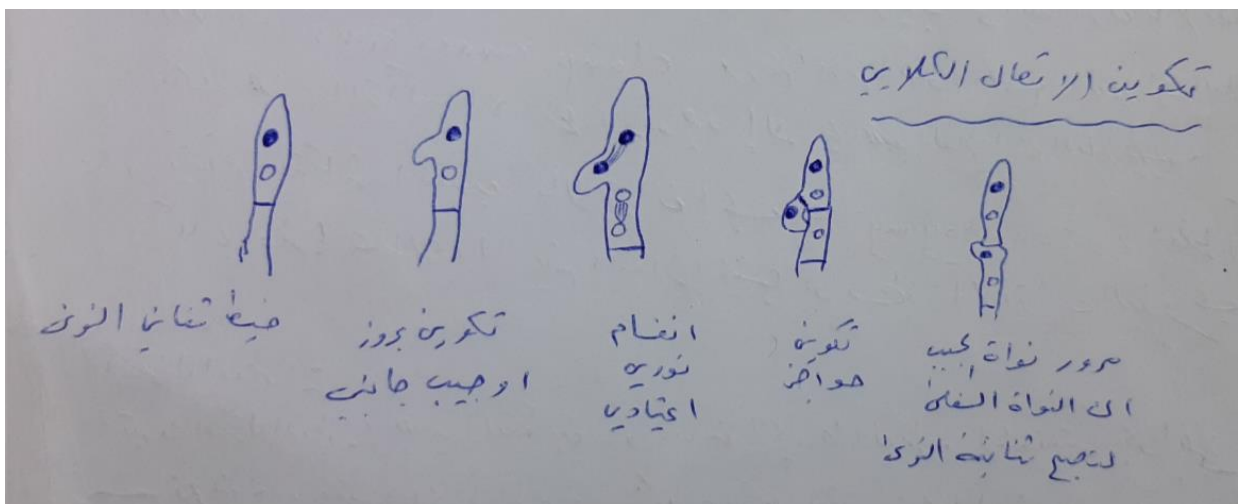 تكوين الاتصال الكلابي
خيط ثنائي النوى
تكوين بروز
او جيب جانبي
انقسام
نووي
اعتيادي
تكوين
حواجز
مرور نواة الجيب
الى النواة السفلى
لتصبح ثنائية النوى